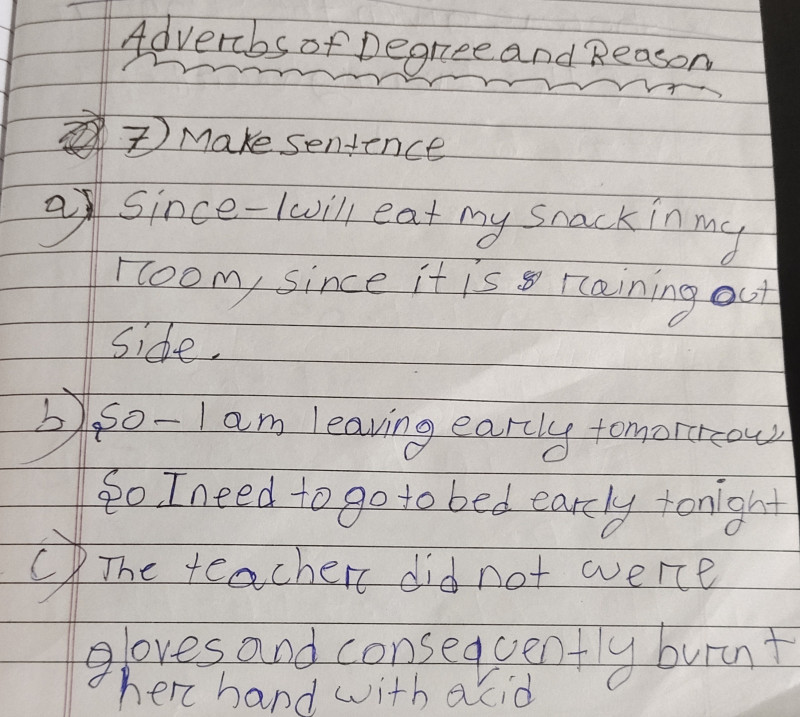 Adverbs of Degree and Reason
7) Make sentence
a) Since - I will eat my snack in my
room, since it is raining out
side.
b) So - I am leaving early tomorrow
So I need to go to bed early tonight
c) The teacher did not were
gloves and consequently burnt
her hand with acid